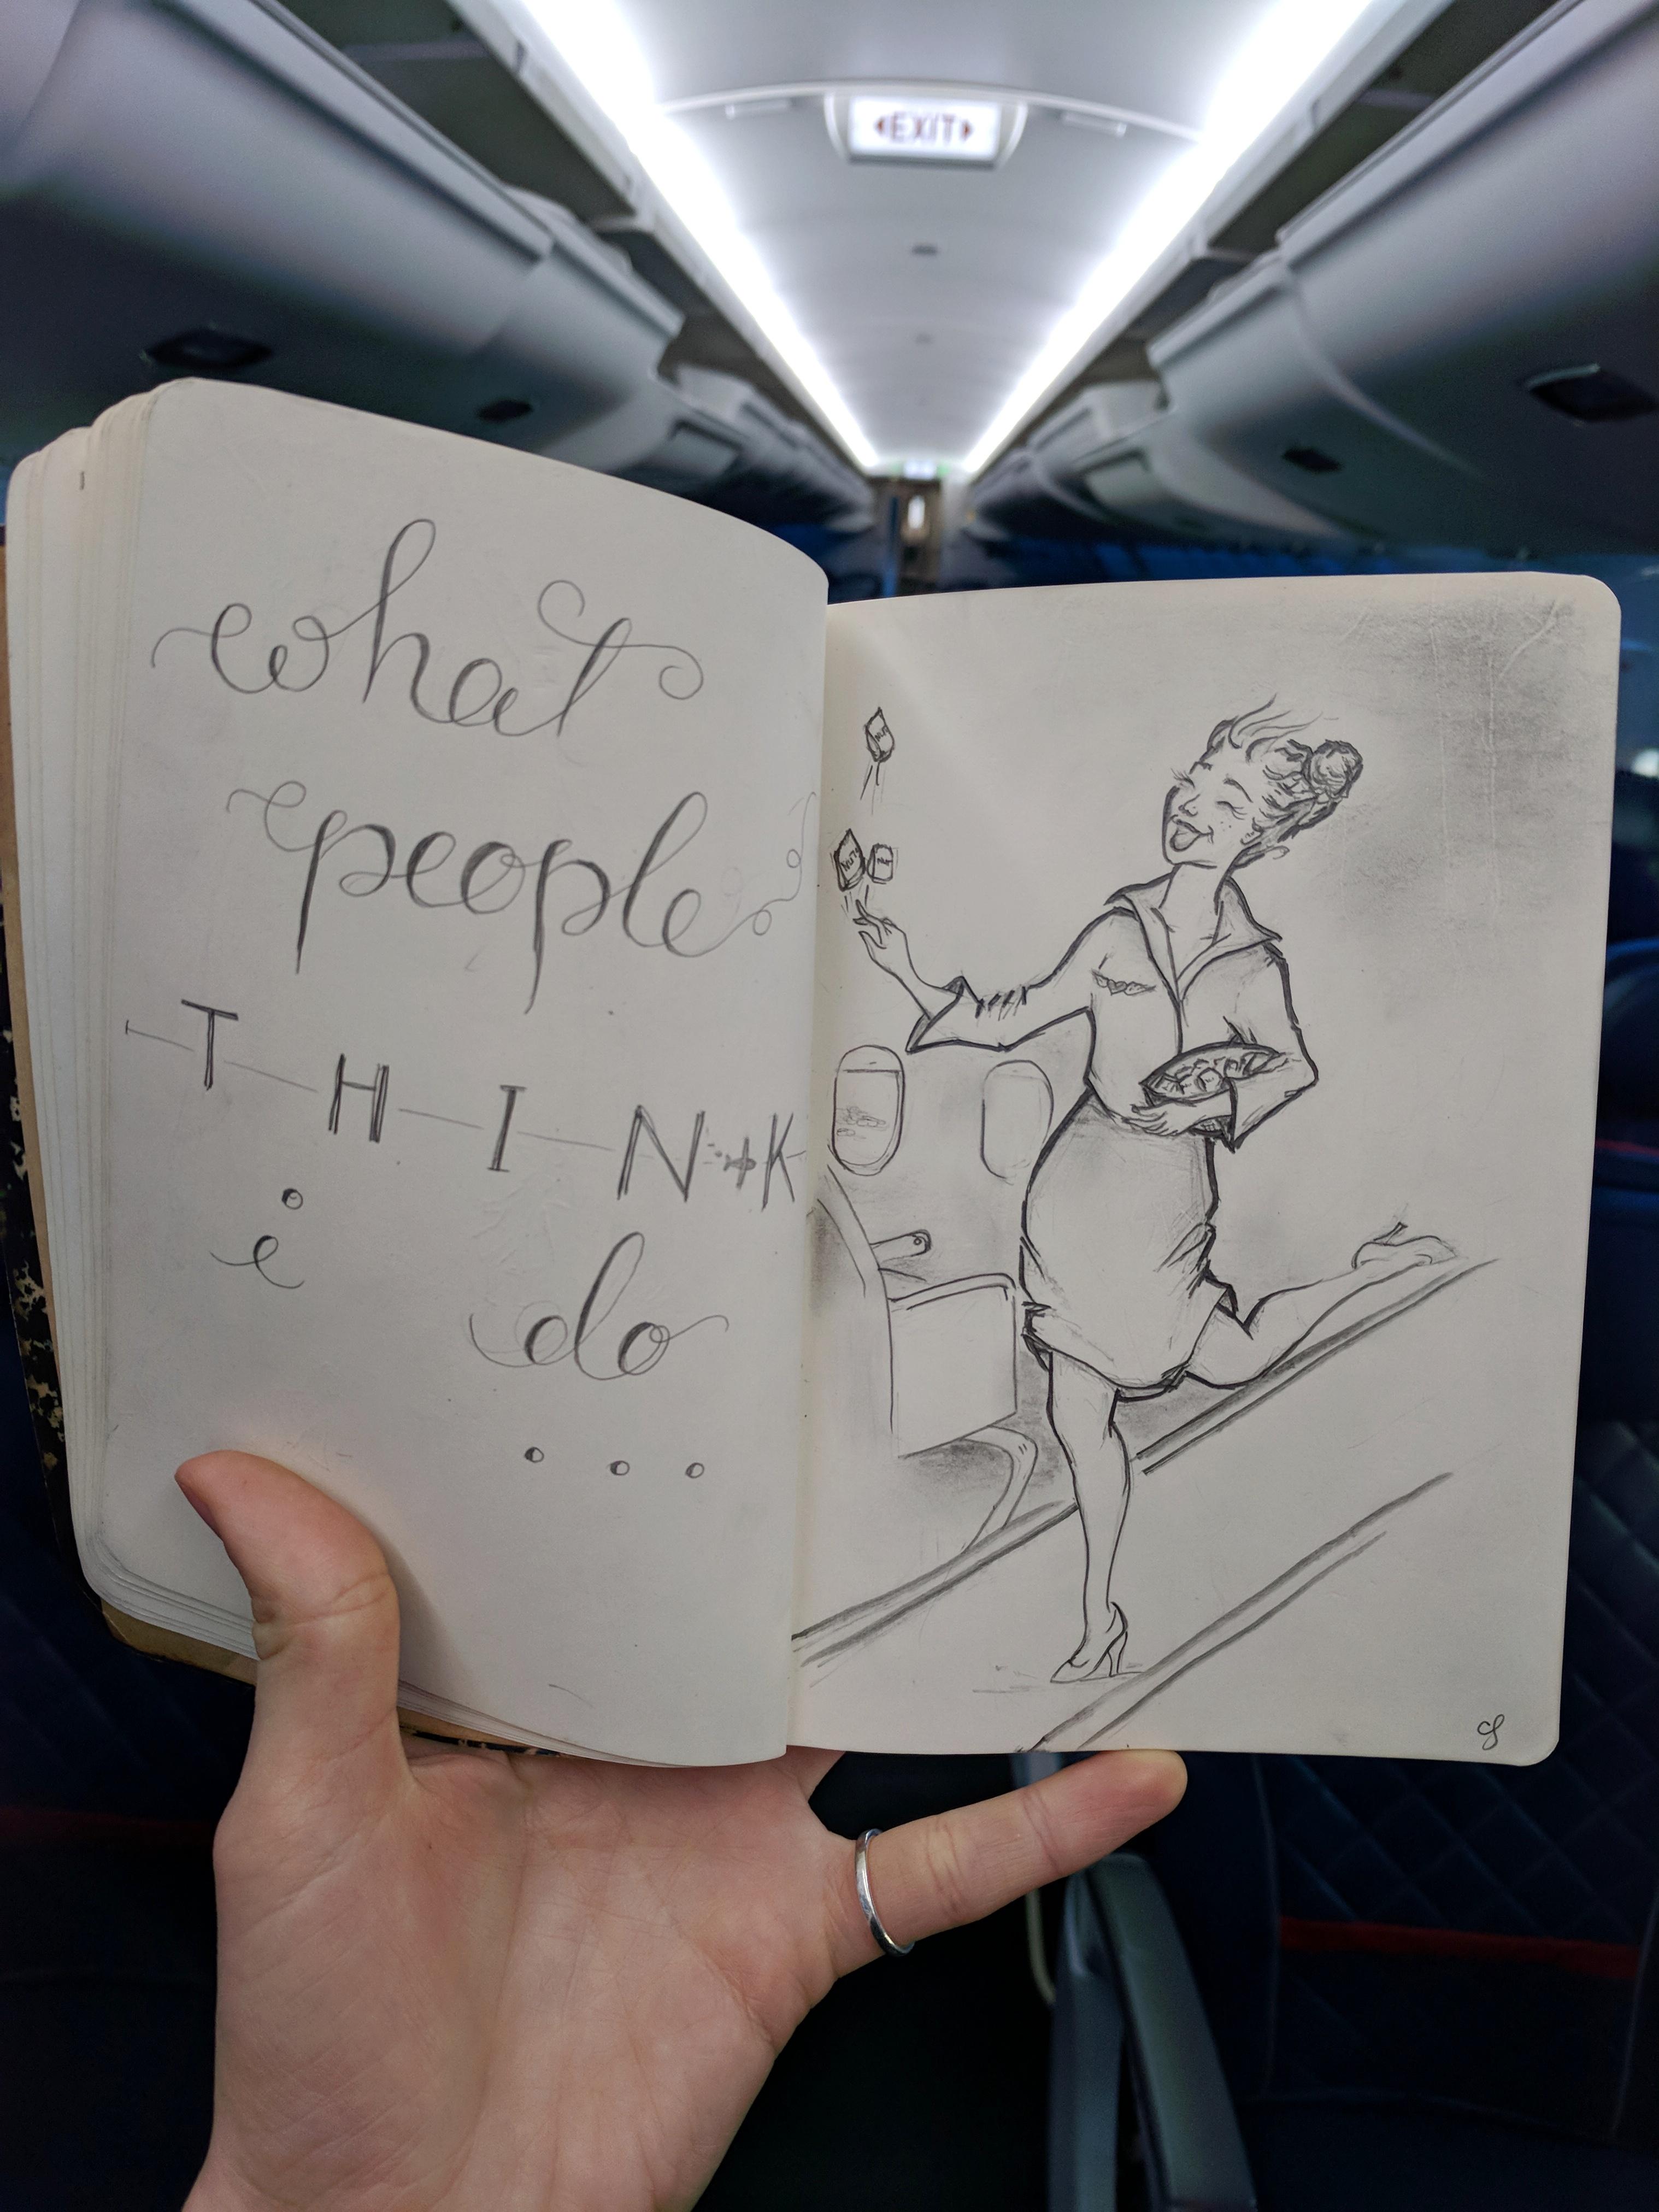 EXIT
what
people
THINK
i do
...
NUT
NUT
NUT